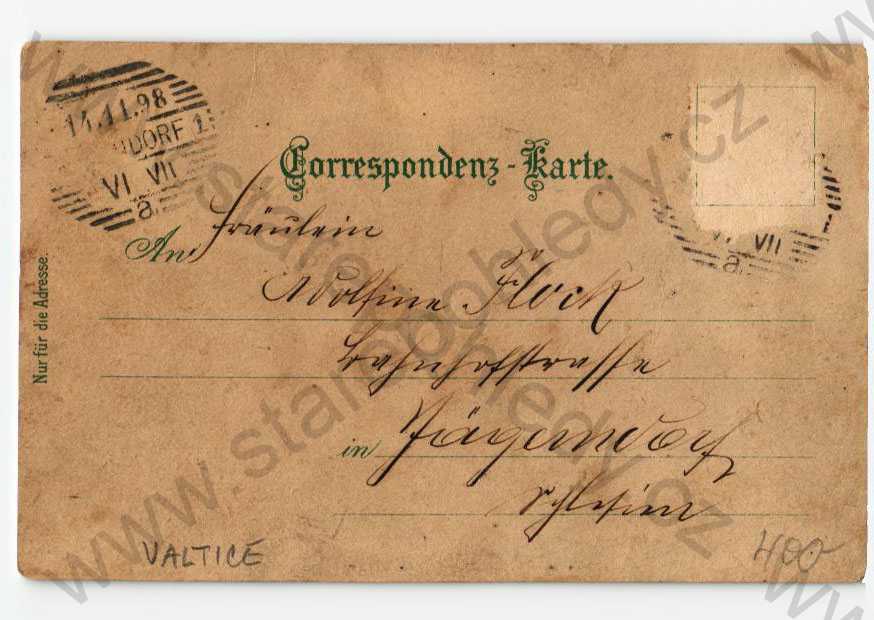 14.11.98
DORF 1
VI VII
a
Correspondenz-Karte.
VI VII
a
An Fräulein
Adolfine Flock
Bahnhofstrasse
in Jägerndorf
Schlesien
Nur für die Adresse.
VALTICE
400-
www.starepohledy.cz